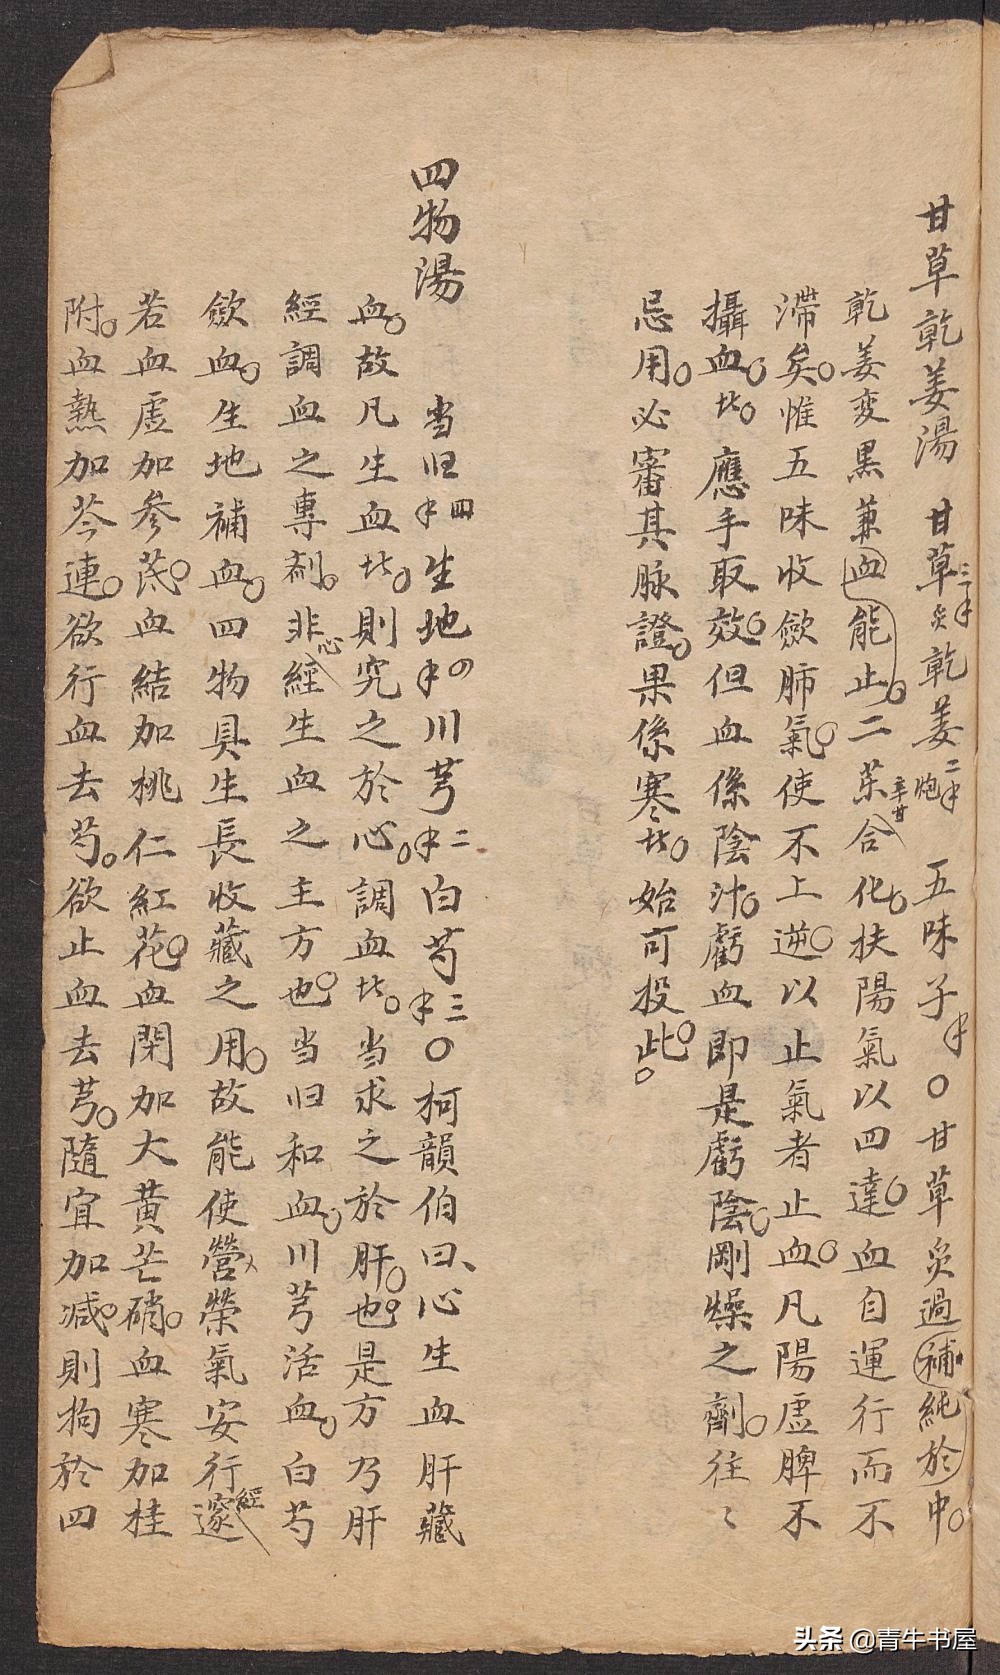 甘草乾姜湯 甘草三 炙乾姜二 炮 五味子 〇甘草炙過補純於中
乾姜變黒兼血能止二菜辛甘合化扶陽氣以四達血自運行而不
滯矣惟五味收斂肺氣使不上逆以止氣者止血凡陽虛脾不
攝血者應手取效但血係陰汁虧血即是虧陰剛燥之劑往〻
忌用必審其脉證果係寒者始可投此
四物湯
当归四 生地 川芎二 白芍三 〇柯韻伯曰心生血肝藏
血故凡生血者則究之於心調血者当求之於肝也是方乃肝
經調血之專劑非心經生血之主方也当归和血川芎活血白芍
斂血生地補血四物具生長收藏之用故能使營榮氣安行經邃
若血虛加參芪血結加桃仁紅花血閉加大黃芒硝血寒加桂
附血熱加芩連欲行血去芍欲止血去芎隨宜加減則拘於四
头条 @青牛书屋